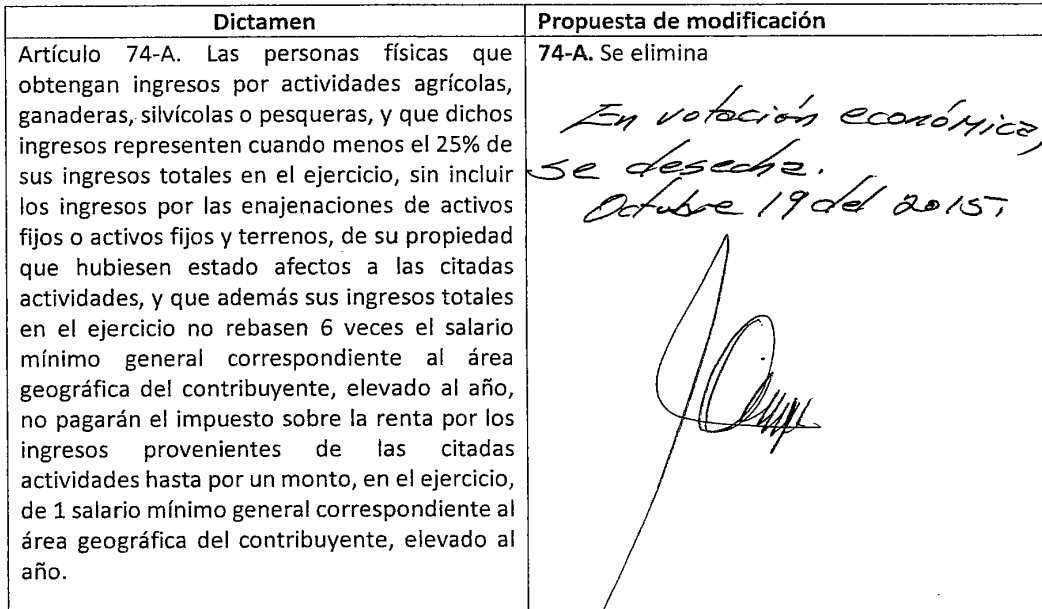 Dictamen
Artículo 74-A. Las personas físicas que
obtengan ingresos por actividades agrícolas,
ganaderas, silvícolas o pesqueras, y que dichos
ingresos representen cuando menos el 25% de
sus ingresos totales en el ejercicio, sin incluir
los ingresos por las enajenaciones de activos
fijos o activos fijos y terrenos, de su propiedad
que hubiesen estado afectos a las citadas
actividades, y que además sus ingresos totales
en el ejercicio no rebasen 6 veces el salario
mínimo general correspondiente al área
geográfica del contribuyente, elevado al año,
no pagarán el impuesto sobre la renta por los
ingresos provenientes de las citadas
actividades hasta por un monto, en el ejercicio,
de 1 salario mínimo general correspondiente al
área geográfica del contribuyente, elevado al
año.
Propuesta de modificación
74-A. Se elimina
En votación económica,
se desecha.
Octubre 19 del 2015.